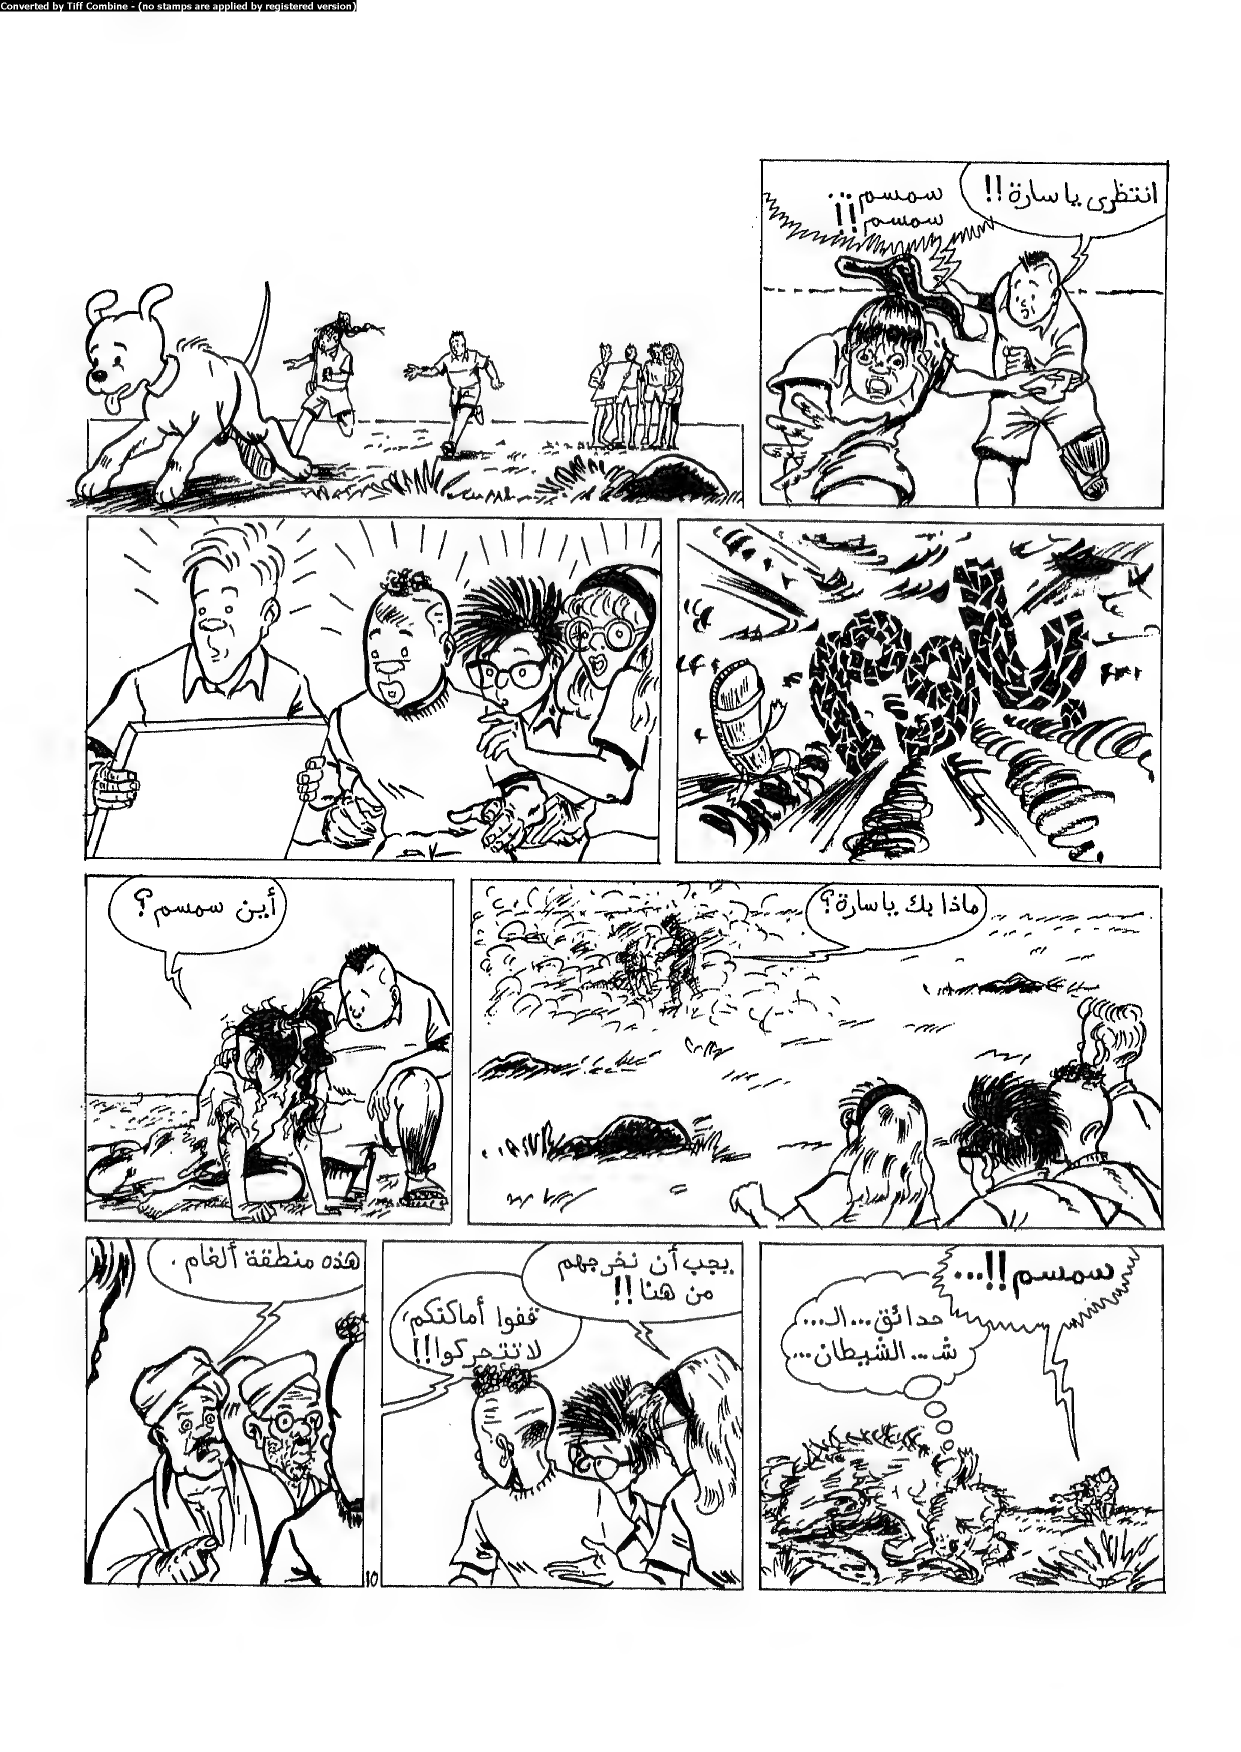 Converted by Tiff Combine - (no stamps are applied by registered version)
انتظرى ياسارة!!
سمسم...
سمسم!!
بوووم
ماذا بك ياسارة؟
أين سمسم؟
سمسم!!...
حدائق...الـ...
شـ...الشيطان...
يجب أن نخرجهم
من هنا!!
قفوا أماكنكم،
لاتتحركوا!!
هذه منطقة ألغام.
10